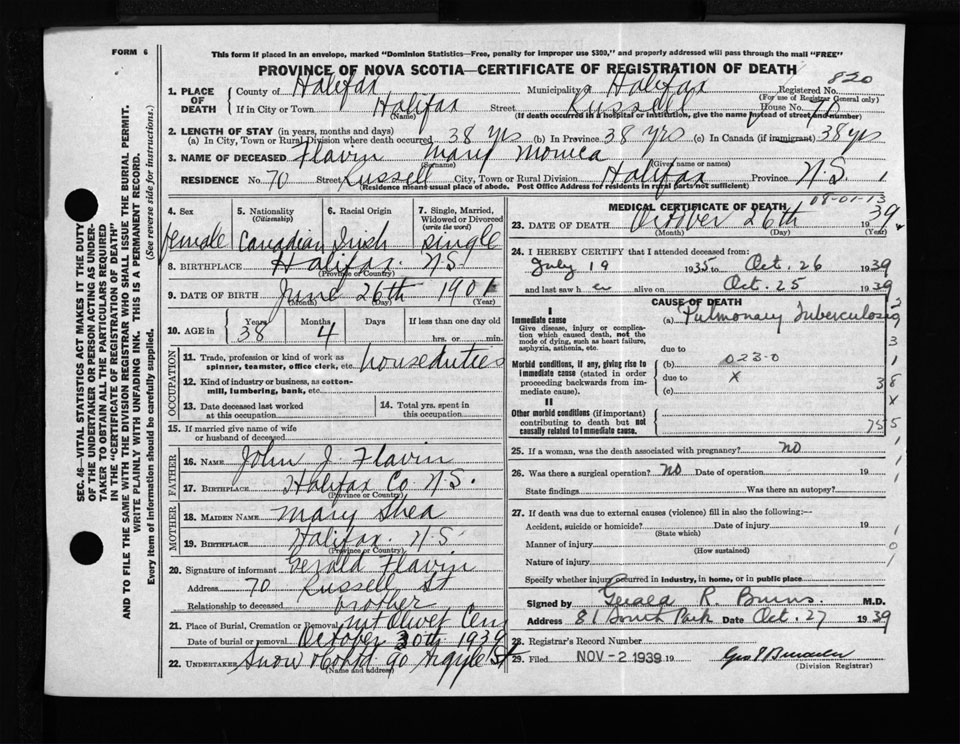 FORM 6
This form if placed in an envelope, marked "Dominion Statistics—Free, penalty for improper use $300," and properly addressed will pass through the mail "FREE"
PROVINCE OF NOVA SCOTIA—CERTIFICATE OF REGISTRATION OF DEATH
820
1. PLACE OF DEATH County of Halifax Municipality Halifax Registered No.
(For use of Registrar General only)
If in City or Town Halifax Street Russell House No. 70
(Name) (If death occurred in a hospital or institution, give the name instead of street and number)
2. LENGTH OF STAY (in years, months and days)
(a) In City, Town or Rural Division where death occurred 38 yrs (b) In Province 38 yrs (c) In Canada (if immigrant) 38 yrs
3. NAME OF DECEASED Flavin Mary Monica
(Surname) (Given name or names)
RESIDENCE No. 70 Street Russell City, Town or Rural Division Halifax Province N.S.
(Residence means usual place of abode. Post Office Address for residents in rural parts not sufficient)
4. Sex female
5. Nationality (Citizenship) Canadian
6. Racial Origin Irish
7. Single, Married, Widowed or Divorced (write the word) single
8. BIRTHPLACE Halifax N.S.
(Province or Country)
9. DATE OF BIRTH June 26th 1901
(Month) (Day) (Year)
10. AGE in Years 38 Months 4 Days If less than one day hrs. or min.
OCCUPATION
11. Trade, profession or kind of work as spinner, teamster, office clerk, etc. house duties
12. Kind of industry or business, as cotton-mill, lumbering, bank, etc.
13. Date deceased last worked at this occupation
14. Total yrs. spent in this occupation
15. If married give name of wife or husband of deceased
FATHER
16. NAME John J. Flavin
17. BIRTHPLACE Halifax Co N.S.
(Province or Country)
MOTHER
18. MAIDEN NAME Mary Shea
19. BIRTHPLACE Halifax N.S.
(Province or Country)
20. Signature of informant Gerald Flavin
Address 70 Russell St
Relationship to deceased brother
21. Place of Burial, Cremation or Removal Mt Olivet Cem
Date of burial or removal October 30th 1939
22. UNDERTAKER Snow & Co Ltd 90 Argyle St
(Name and address)
MEDICAL CERTIFICATE OF DEATH
08-01-13
23. DATE OF DEATH October 26th 1939
(Month) (Day) (Year)
24. I HEREBY CERTIFY that I attended deceased from:
July 19 1935 to Oct. 26 1939
and last saw her alive on Oct. 25 1939
CAUSE OF DEATH
I
Immediate cause (a) Pulmonary Tuberculosis
Give disease, injury or complication which caused death, not the mode of dying, such as heart failure, asphyxia, asthenia, etc.
due to
Morbid conditions, if any, giving rise to immediate cause (stated in order proceeding backwards from immediate cause).
(b) 023-0
due to X
(c)
II
Other morbid conditions (if important) contributing to death but not causally related to immediate cause.
25. If a woman, was the death associated with pregnancy? no
26. Was there a surgical operation? no Date of operation 19
State findings Was there an autopsy?
27. If death was due to external causes (violence) fill in also the following:—
Accident, suicide or homicide? Date of injury 19
(State which)
Manner of injury
(How sustained)
Nature of injury
Specify whether injury occurred in industry, in home, or in public place
Signed by Gerald R. Burns. M.D.
Address 81 South Park Date Oct. 27 1939
28. Registrar's Record Number
29. Filed NOV - 2 1939 19
(Division Registrar)
SEC. 46—VITAL STATISTICS ACT MAKES IT THE DUTY
OF THE UNDERTAKER OR PERSON ACTING AS UNDER-
TAKER TO OBTAIN ALL THE PARTICULARS REQUIRED
IN THE "CERTIFICATE OF REGISTRATION OF DEATH"
AND TO FILE THE SAME WITH THE DIVISION REGISTRAR WHO SHALL ISSUE THE BURIAL PERMIT.
WRITE PLAINLY WITH UNFADING INK. THIS IS A PERMANENT RECORD.
Every item of information should be carefully supplied. (See reverse side for instructions.)